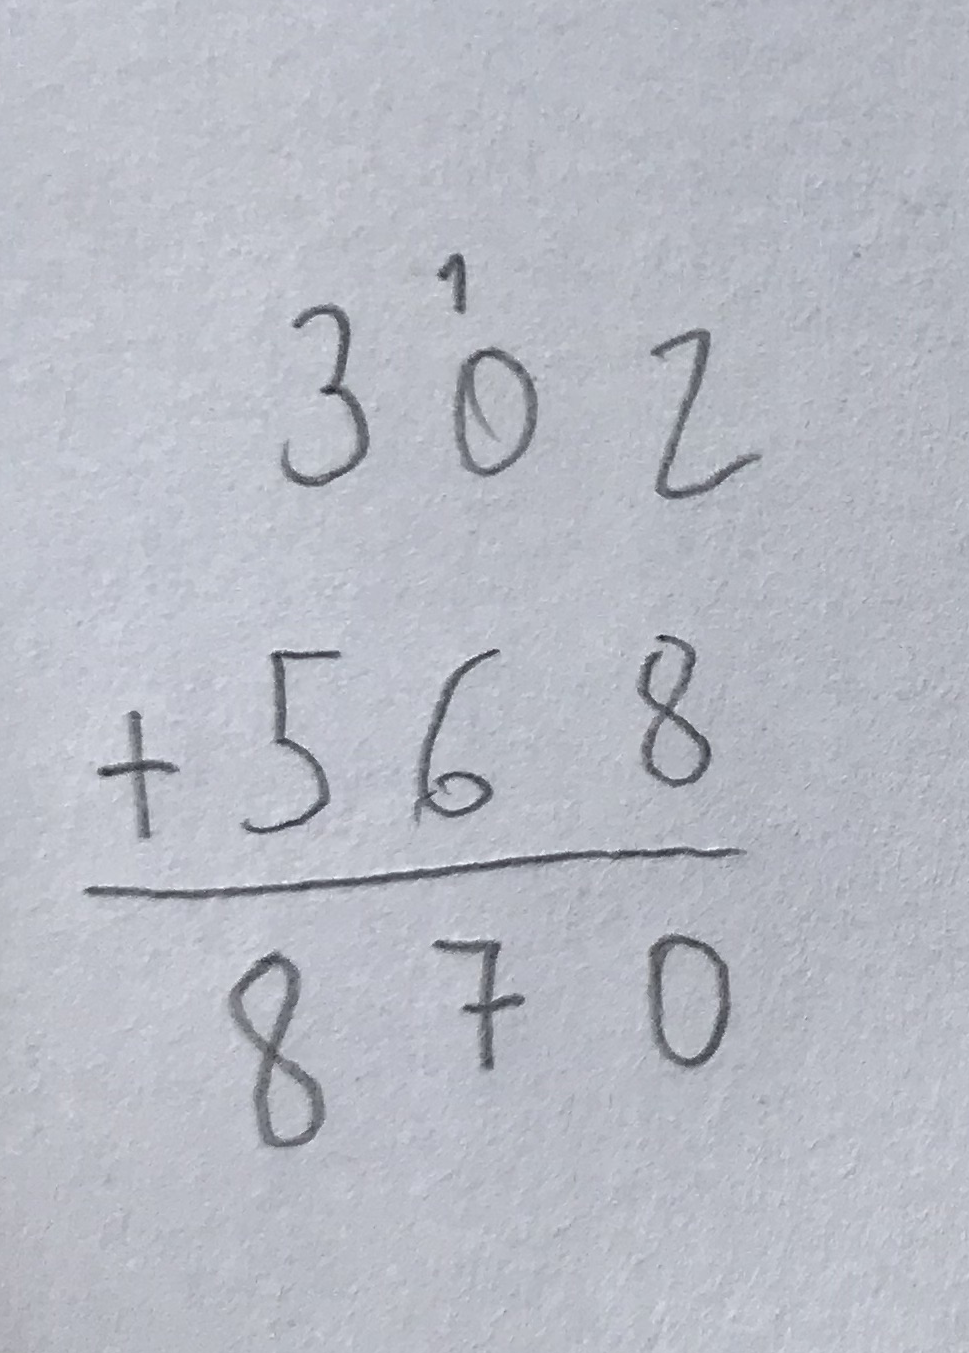 1
302
+568
870